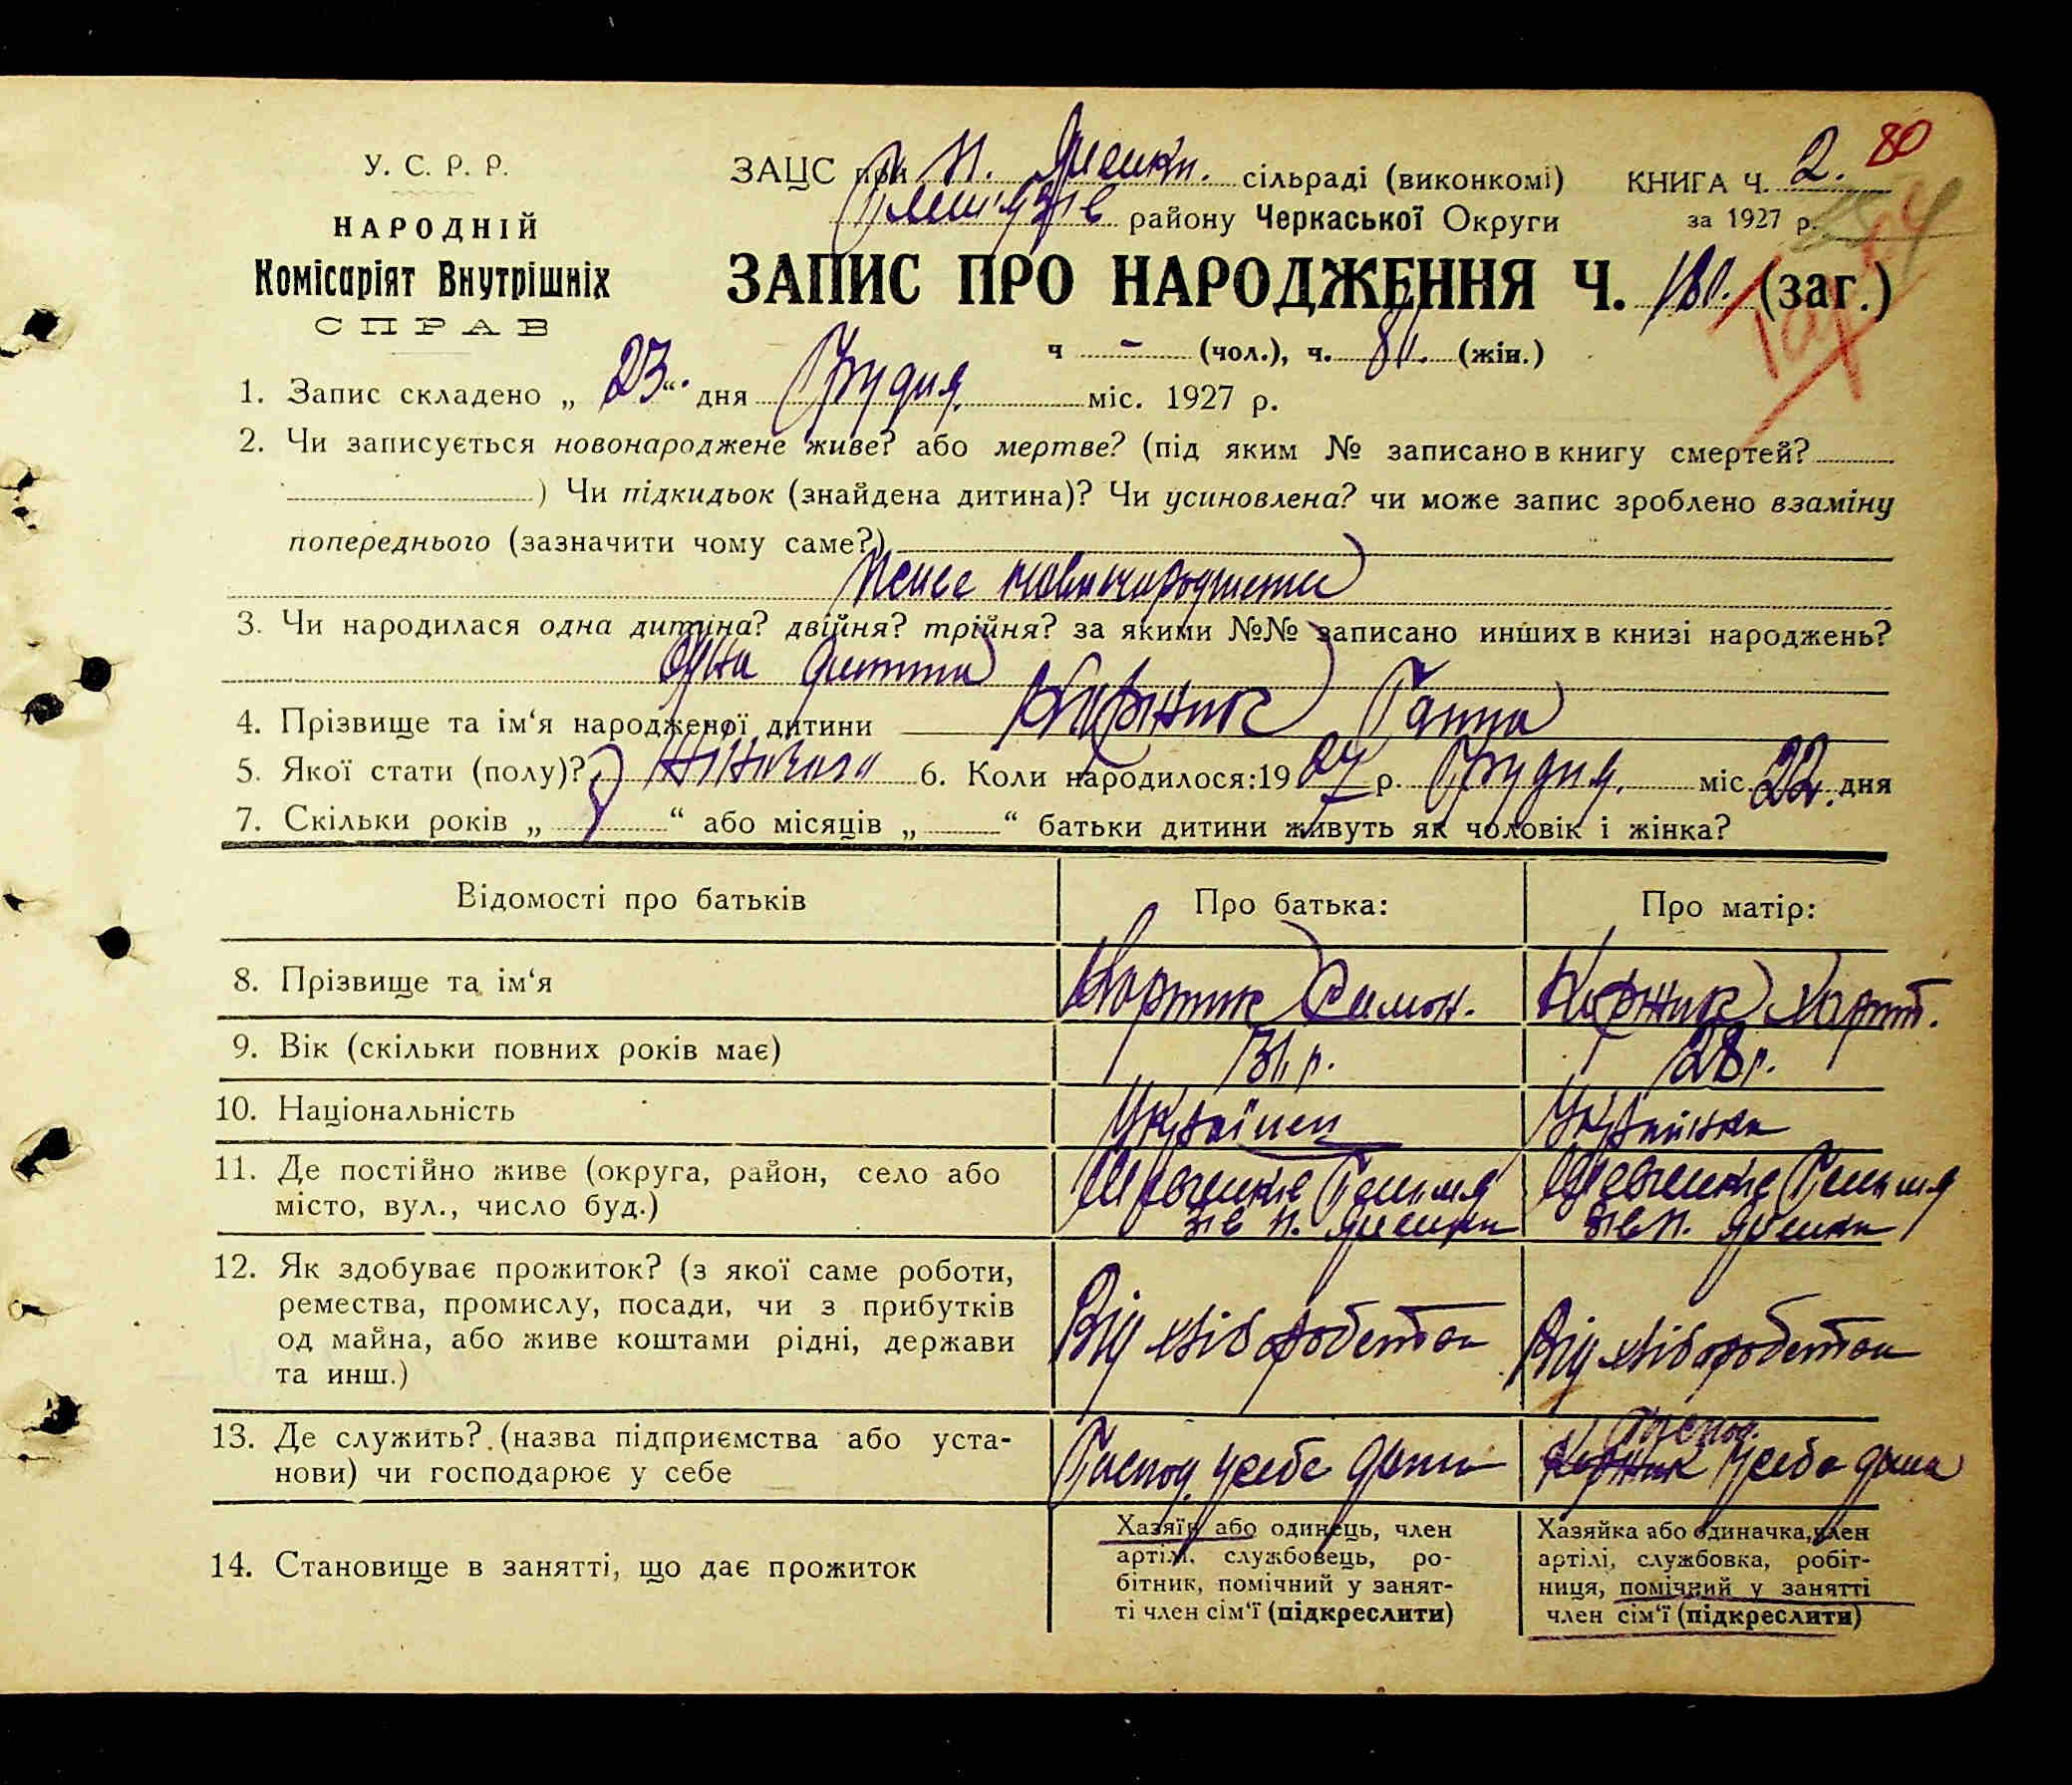 У. С. Р. Р.
НАРОДНІЙ
Комісаріят Внутрішніх
СПРАВ
ЗАЦС при сільраді (виконкомі)
району Черкаської Округи
КНИГА Ч. 2. 80
за 1927 р.
ЗАПИС ПРО НАРОДЖЕННЯ Ч. 180. (заг.)
ч - (чол.), ч. (жін.)
1. Запис складено „ 23 “ дня Грудня міс. 1927 р.
2. Чи записується новонароджене живе? або мертве? (під яким № записано в книгу смертей?
) Чи підкидьок (знайдена дитина)? Чи усиновлена? чи може запис зроблено взаміну
попереднього (зазначити чому саме?)
3. Чи народилася одна дитина? двійня? трійня? за якими №№ записано инших в книзі народжень?
Одна
4. Прізвище та ім‘я народженої дитини Коржик Ганна
5. Якої стати (полу)? 6. Коли народилося: 1927 р. Грудня міс. 22. дня
7. Скільки років „ “ або місяців „ “ батьки дитини живуть як чоловік і жінка?
Відомості про батьків Про батька: Про матір:
8. Прізвище та ім‘я Коржик Коржик
9. Вік (скільки повних років має) 31. р. 28 р.
10. Національність Українец Українка
11. Де постійно живе (округа, район, село або
місто, вул., число буд.)
12. Як здобуває прожиток? (з якої саме роботи,
ремества, промислу, посади, чи з прибутків
од майна, або живе коштами рідні, держави
та инш.)
Від Від
13. Де служить? (назва підприємства або уста-
нови) чи господарює у себе
Господ. у себе дома Господ. Коржик у себе дома
14. Становище в занятті, що дає прожиток
Хазяїн або одинець, член
артілі, службовець, ро-
бітник, помічний у занят-
ті член сім‘ї (підкреслити)
Хазяйка або одиначка, член
артілі, службовка, робіт-
ниця, помічний у занятті
член сім‘ї (підкреслити)